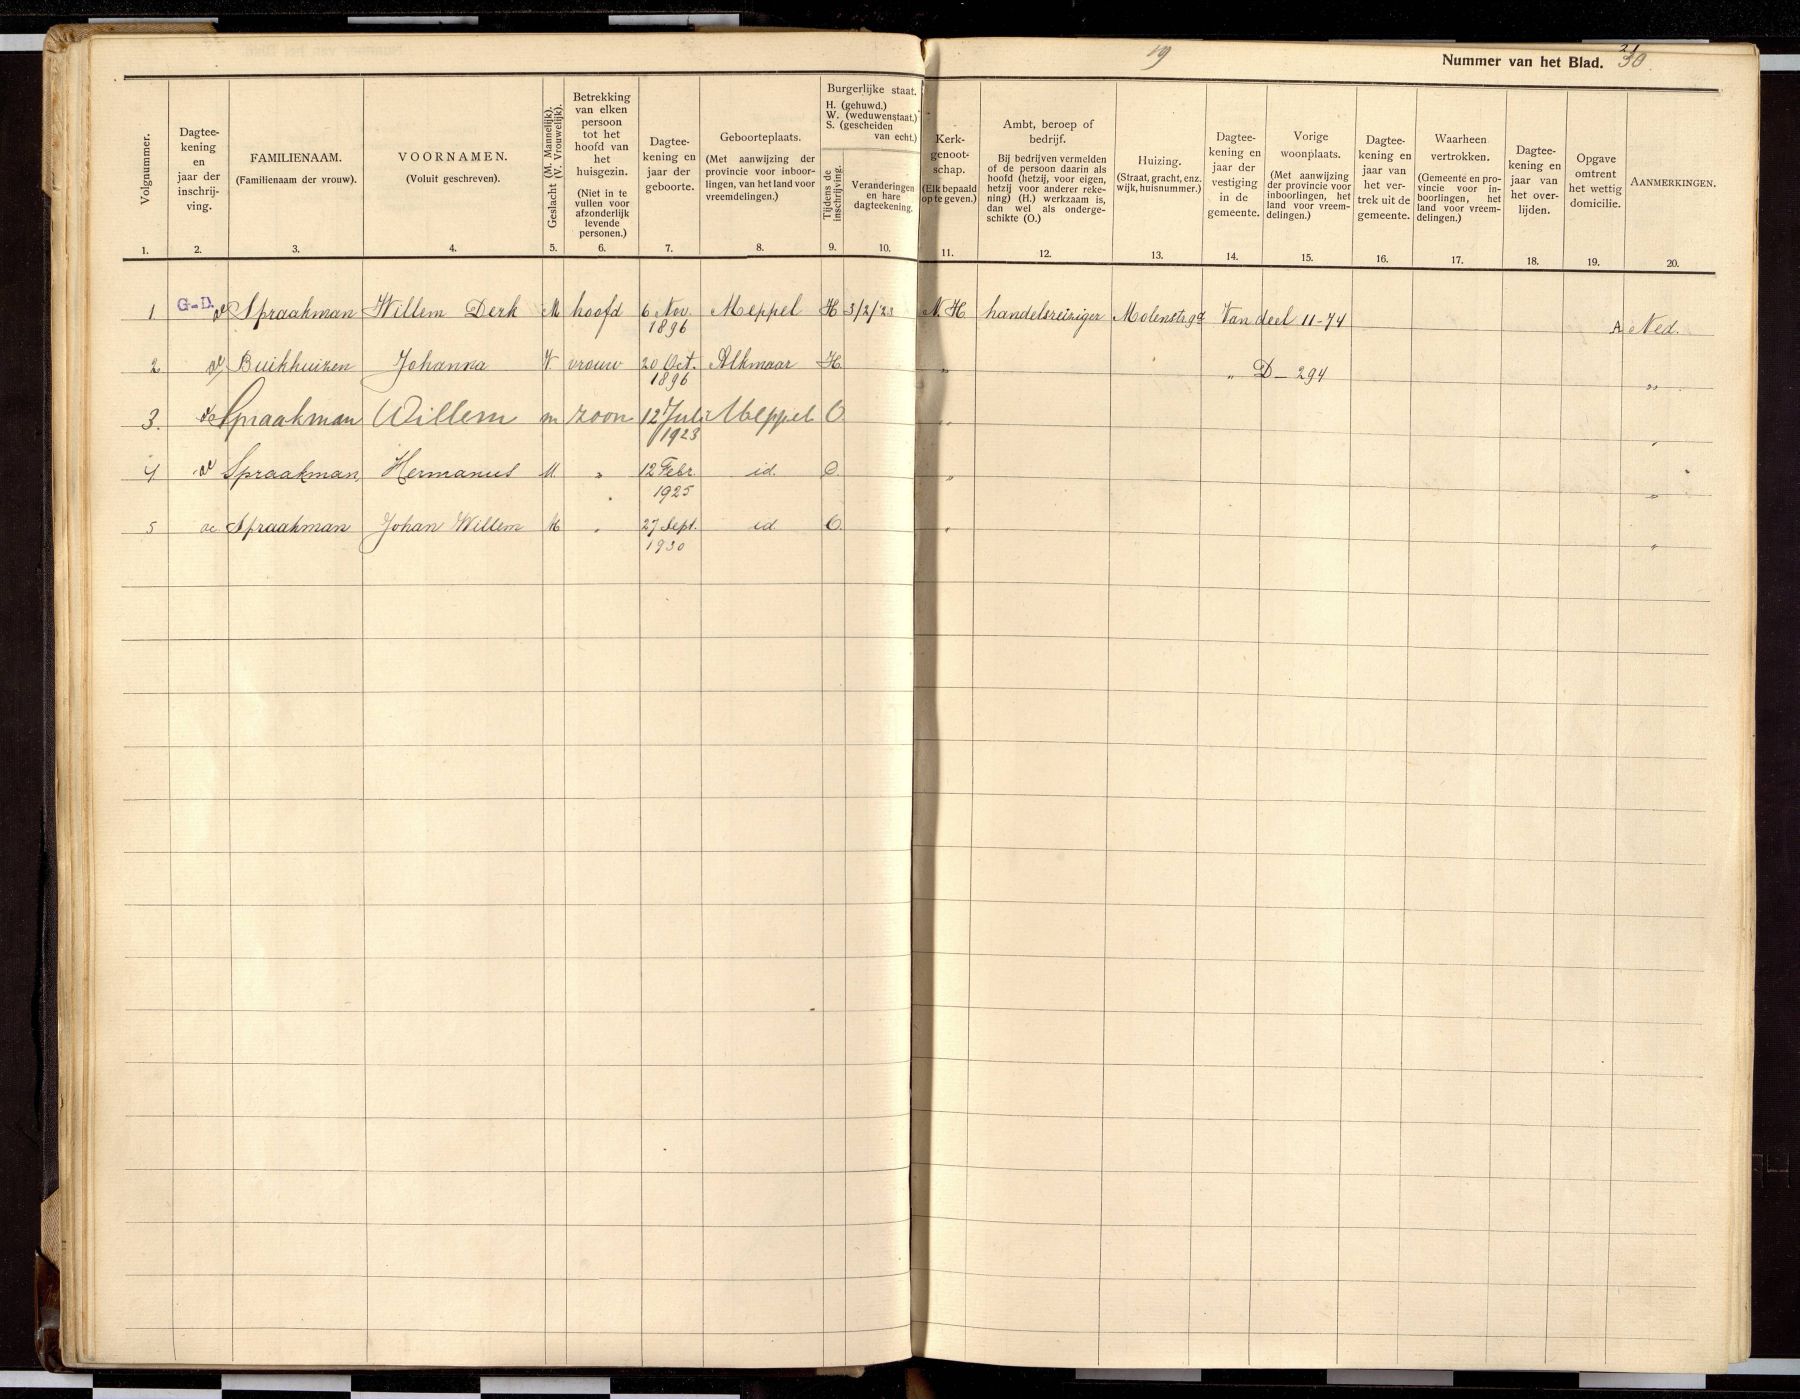 19
Nummer van het Blad. 31 30
Volgnummer.
Dagtee-
kening
en
jaar der
inschrij-
ving.
FAMILIENAAM.
(Familienaam der vrouw).
VOORNAMEN.
(Voluit geschreven).
Geslacht (M. Mannelijk).
(V. Vrouwelijk).
Betrekking
van elken
persoon
tot het
hoofd van
het
huisgezin.
(Niet in te
vullen voor
afzonderlijk
levende
personen.)
Dagtee-
kening en
jaar der
geboorte.
Geboorteplaats.
(Met aanwijzing der
provincie voor inboor-
lingen, van het land voor
vreemdelingen.)
Burgerlijke staat.
H. (gehuwd.)
W. (weduwenstaat.)
S. (gescheiden
van echt.)
Tijdens de
inschrijving.
Veranderingen
en hare
dagteekening.
Kerk-
genoot-
schap.
(Elk bepaald
op te geven.)
Ambt, beroep of
bedrijf.
Bij bedrijven vermelden
of de persoon daarin als
hoofd (hetzij, voor eigen,
hetzij voor anderer reke-
ning) (H.) werkzaam is,
dan wel als onderge-
schikte (O.)
Huizing.
(Straat, gracht, enz.
wijk, huisnummer.)
Dagtee-
kening en
jaar der
vestiging
in de
gemeente.
Vorige
woonplaats.
(Met aanwijzing
der provincie voor
inboorlingen, het
land voor vreem-
delingen.)
Dagtee-
kening en
jaar van
het ver-
trek uit de
gemeente.
Waarheen
vertrokken.
(Gemeente en pro-
vincie voor in-
boorlingen, het
land voor vreem-
delingen.)
Dagtee-
kening en
jaar van
het over-
lijden.
Opgave
omtrent
het wettig
domicilie.
AANMERKINGEN.
1. 2. 3. 4. 5. 6. 7. 8. 9. 10. 11. 12. 13. 14. 15. 16. 17. 18. 19. 20.
1 G-D. Spraakman Willem Derk M hoofd 6 Nov. Meppel H 3/2/'23 N.H handelsreiziger Molenstr gd Van deel 11-74 A Ned.
1896
2 Buikhuizen Johanna V vrouw 20 Oct. Alkmaar H „ „ D-294 „
1896
3. Spraakman Willem m zoon 12 Juli Meppel O. „ „
1923
4 Spraakman, Hermanus M. „ 12 Febr. id. O. „ „
1925
5 Spraakman Johan Willem M „ 27 Sept. id. O. „ „
1930